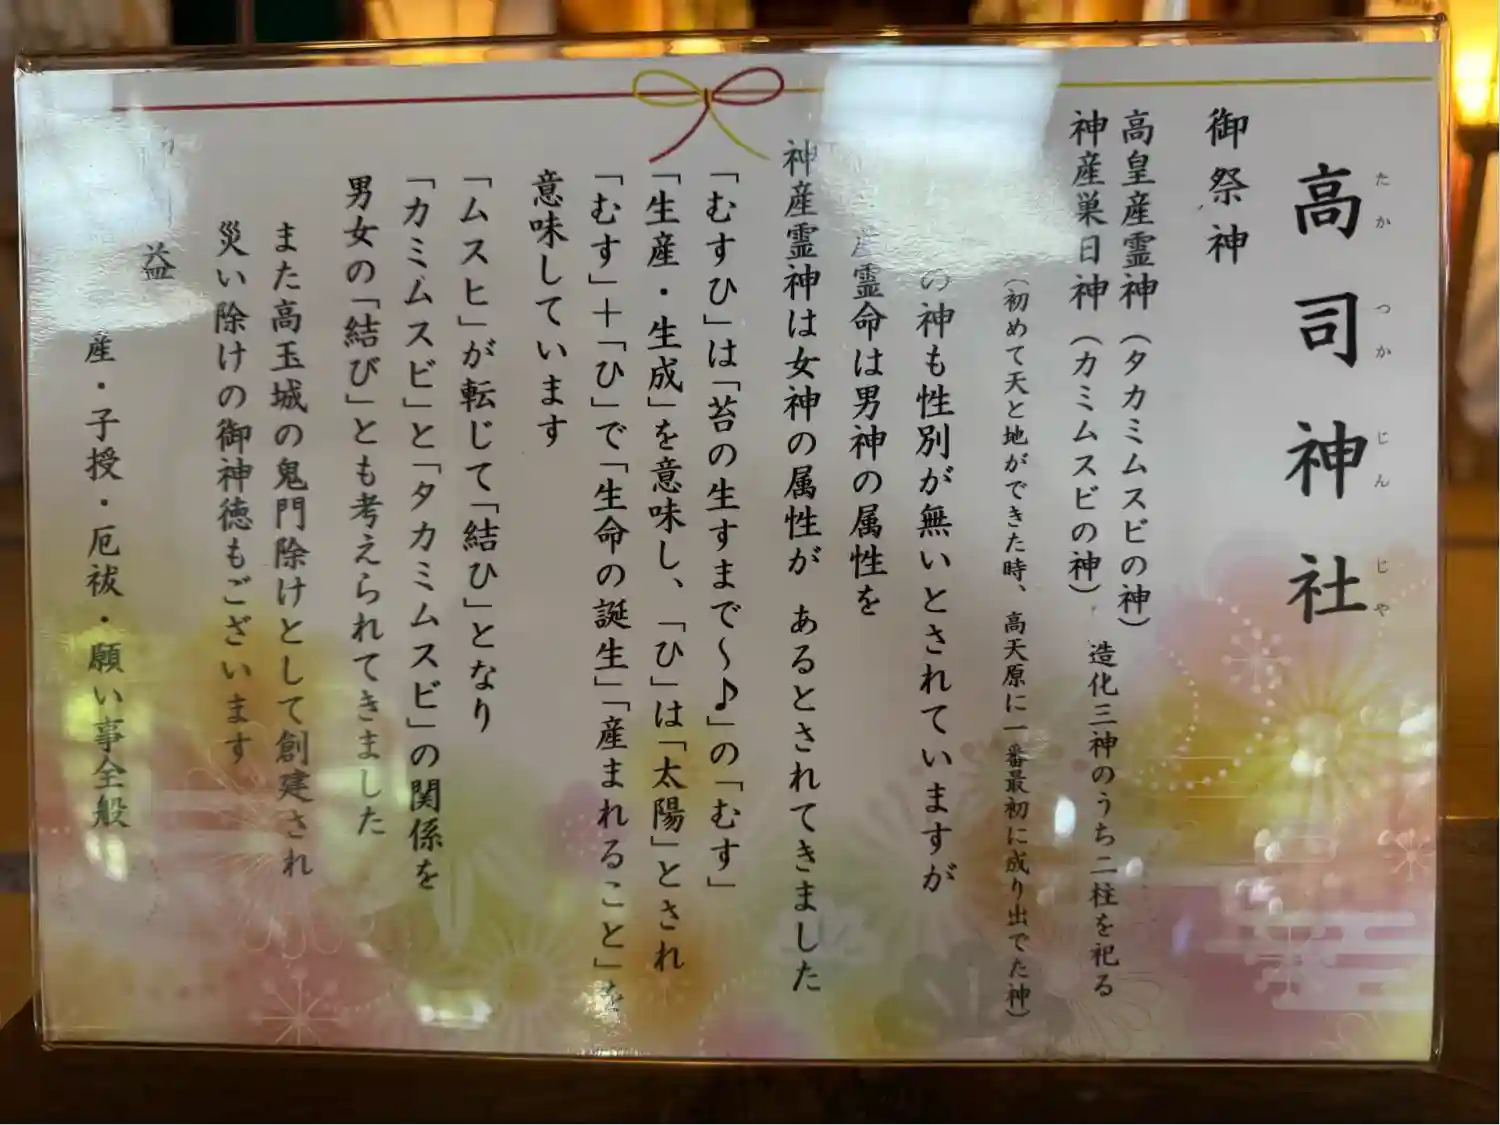 高司神社
たかつかじんじゃ
御祭神
高皇産霊神（タカミムスビの神）
神産巣日神（カミムスビの神）
造化三神のうち二柱を祀る
（初めて天と地ができた時、高天原に一番最初に成り出でた神）
の神も性別が無いとされていますが
産霊命は男神の属性を
神産霊神は女神の属性が　あるとされてきました
「むすひ」は「苔の生すまで～♪」の「むす」
「生産・生成」を意味し、「ひ」は「太陽」とされ
「むす」＋「ひ」で「生命の誕生」「産まれること」を
意味しています
「ムスヒ」が転じて「結ひ」となり
「カミムスビ」と「タカミムスビ」の関係を
男女の「結び」とも考えられてきました
また高玉城の鬼門除けとして創建され
災い除けの御神徳もございます
益
産・子授・厄祓・願い事全般